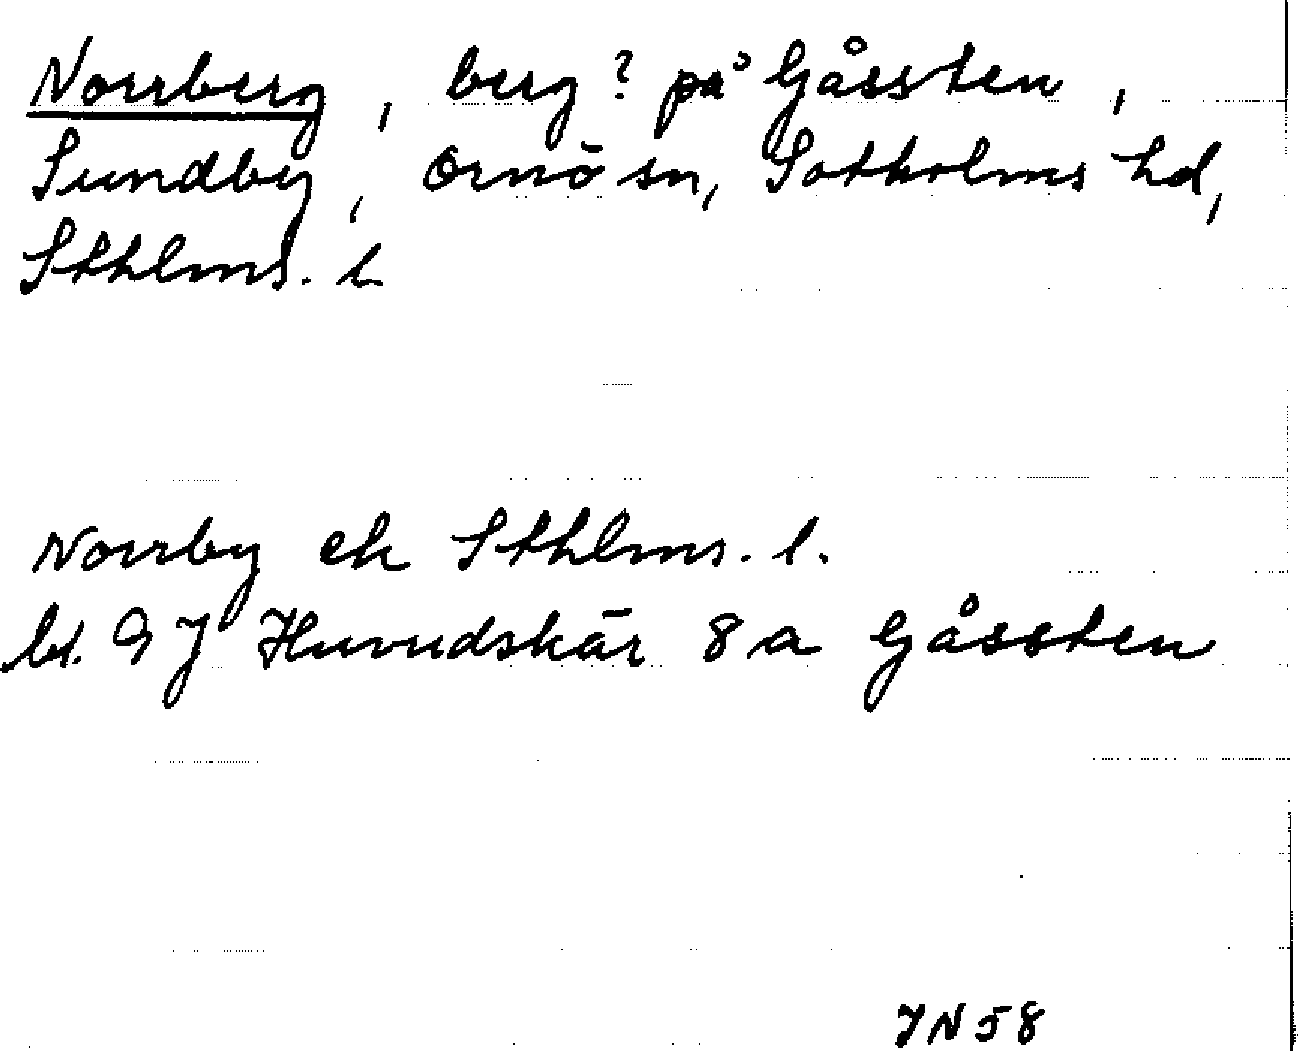 Norrberg, berg? på Gåssten,
Sundby, Ornö sn, Sotholms hd,
Sthlms. l.
Norrby ek Sthlms. l.
bl. 9 J Huvudskär 8 a Gåssten
JN 58